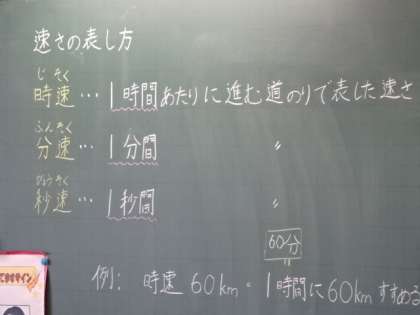 速さの表し方
じ そく
時速…1時間あたりに進む道のりで表した速さ
ふん そく
分速…1分間 〃
びょう そく
秒速…1秒間 〃
60分
例: 時速60km・1時間に60kmすすめる